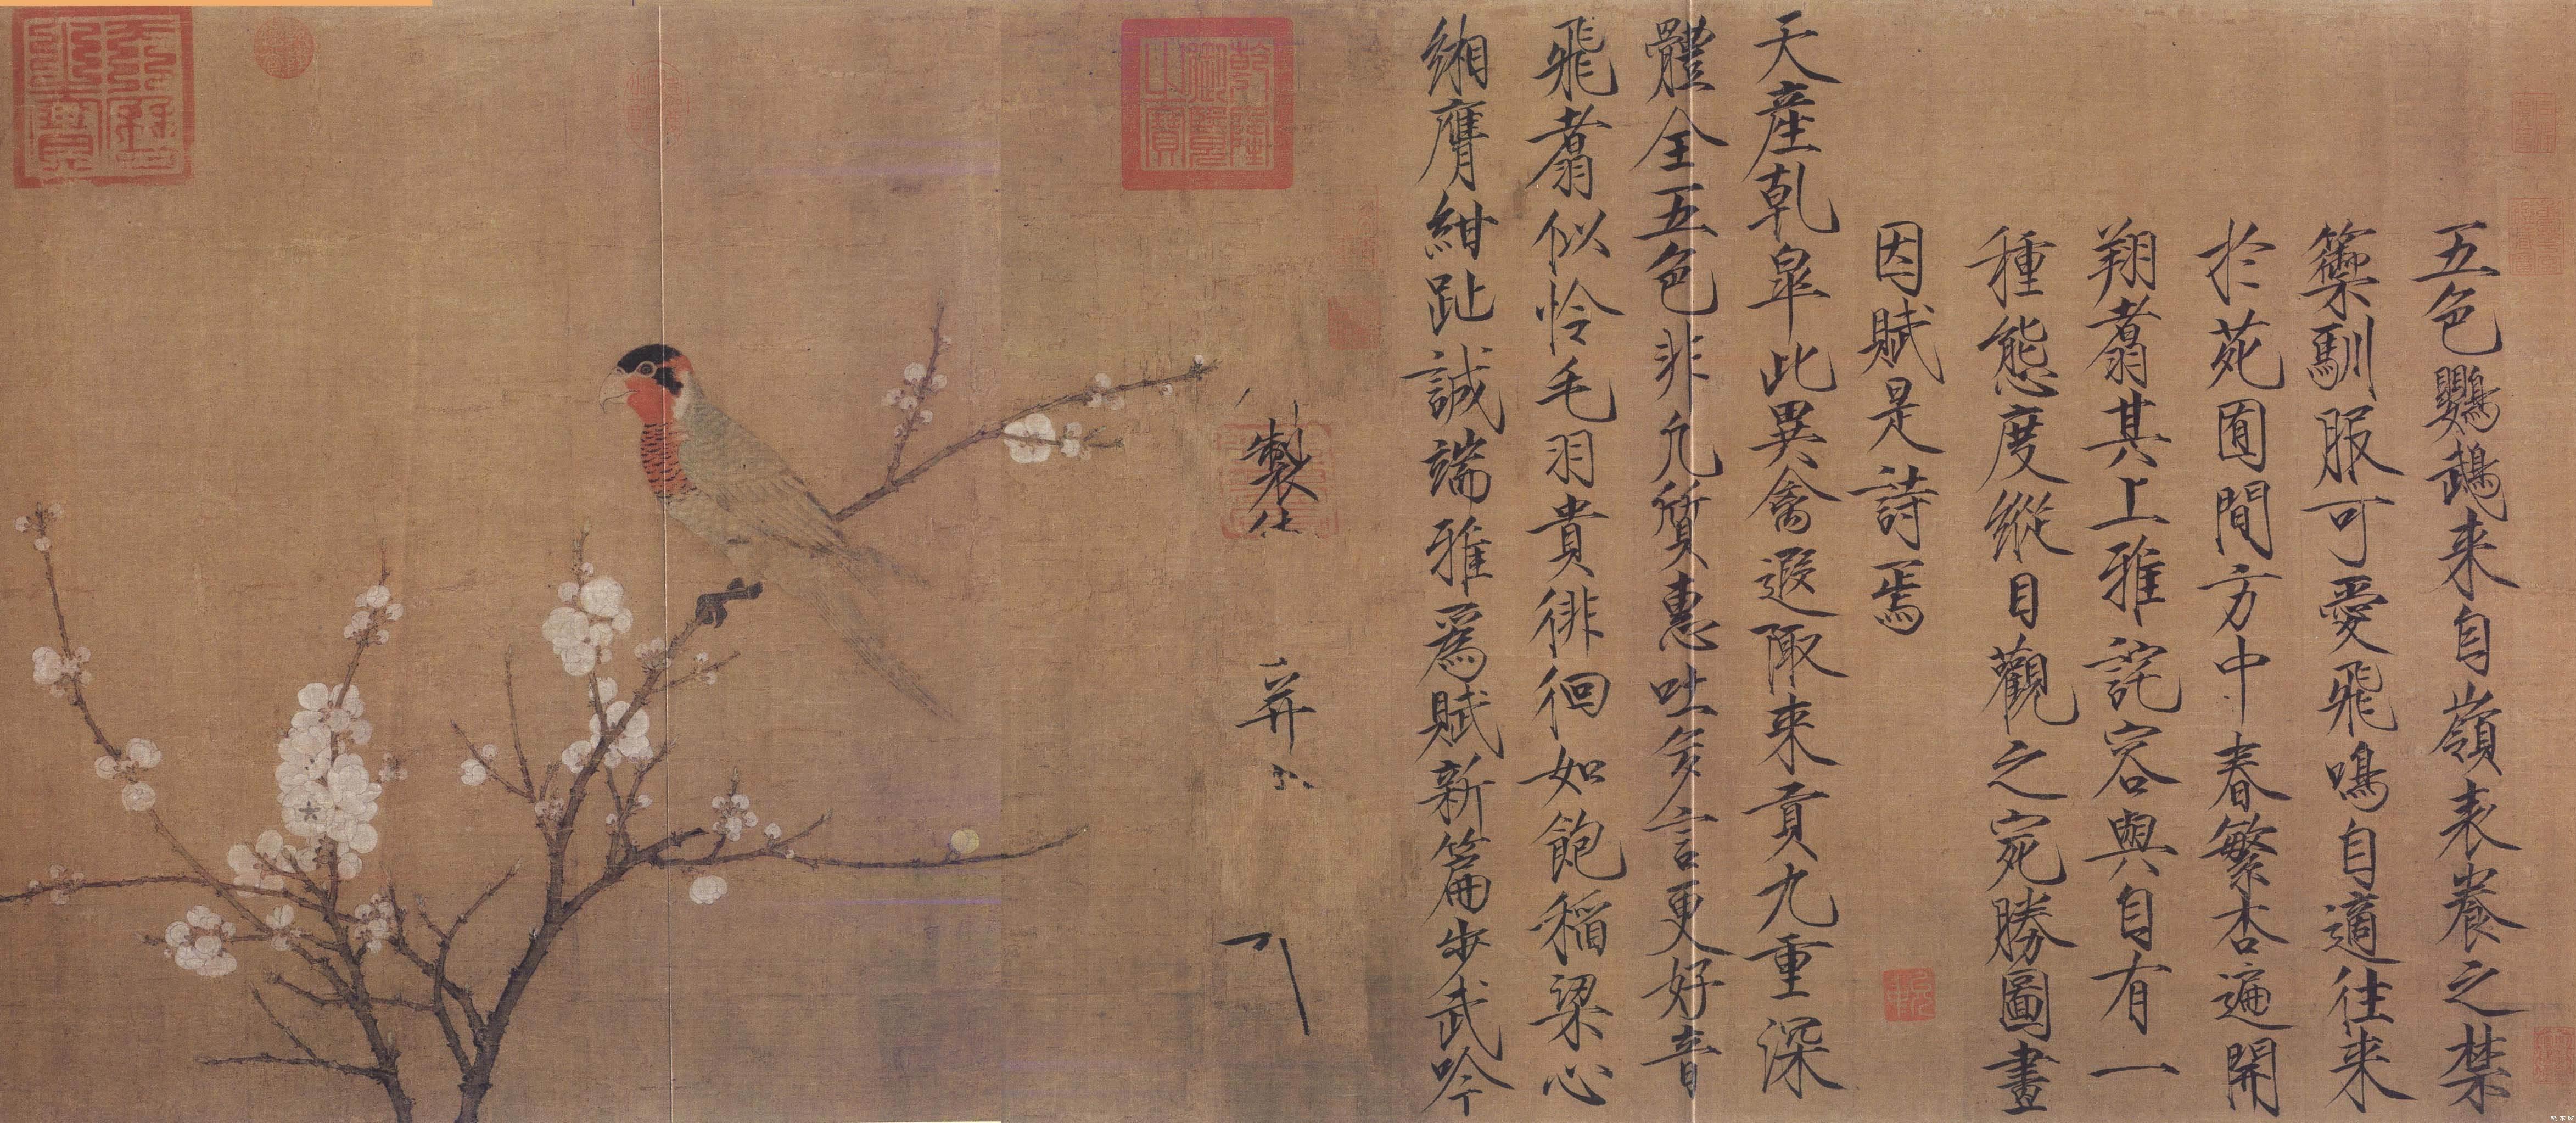 五色鸚鵡来自嶺表養之禁
籞馴服可愛飛鳴自適往来
於苑囿間方中春繁杏遍開
翔翥其上雅詫容與自有一
種態度縱目觀之宛勝圖畫
因賦是詩焉
天産乾皐此異禽遐陬来貢九重深
體全五色非凢質惠吐多言更好音
飛翥似怜毛羽貴徘徊如飽稲粱心
緗膺紺趾誠端雅爲賦新篇步武吟
製